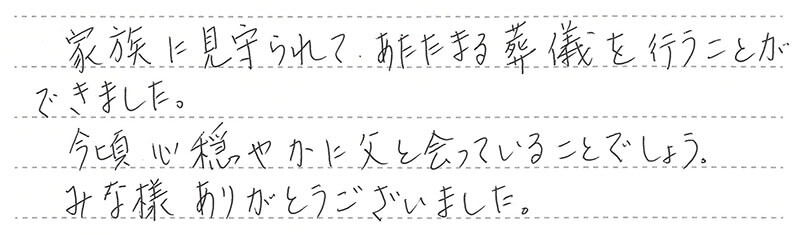 家族に見守られて、あたたまる葬儀を行うことが
できました。
今頃心穏やかに父と会っていることでしょう。
みな様ありがとうございました。